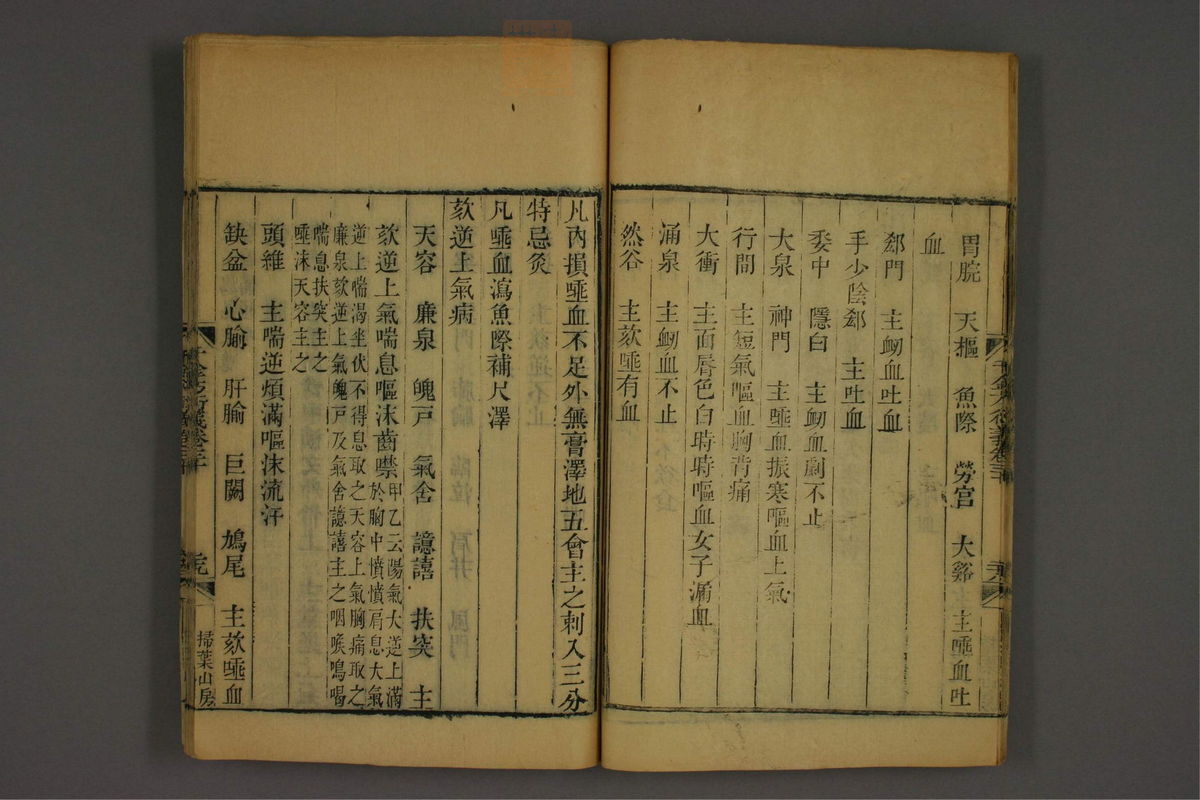 胃脘　天樞　魚際　勞宮　大谿　主唾血吐
血
郄門　主衂血吐血
手少陰郄　主吐血
委中　隱白　主衂血劇不止
大泉　神門　主唾血振寒嘔血上氣
行間　主短氣嘔血胸背痛
大衝　主面唇色白時時嘔血女子漏血
涌泉　主衂血不止
然谷　主欬唾有血
凡內損唾血不足外無膏澤地五會主之刺入三分
特忌灸
凡唾血瀉魚際補尺澤
欬逆上氣病
天容　廉泉　魄戸　氣舍　譩譆　扶突　主
欬逆上氣喘息嘔沫齒噤甲乙云陽氣大逆上滿
於胸中憤憤肩息大氣
逆上喘渴坐伏不得息取之天容上氣胸痛取之
廉泉欬逆上氣魄戸及氣舍譩譆主之咽喉鳴喝
喘息扶突主之
唾沫天容主之
頭維　主喘逆煩滿嘔沫流汗
缺盆　心腧　肝腧　巨闕　鳩尾　主欬唾血
掃葉山房